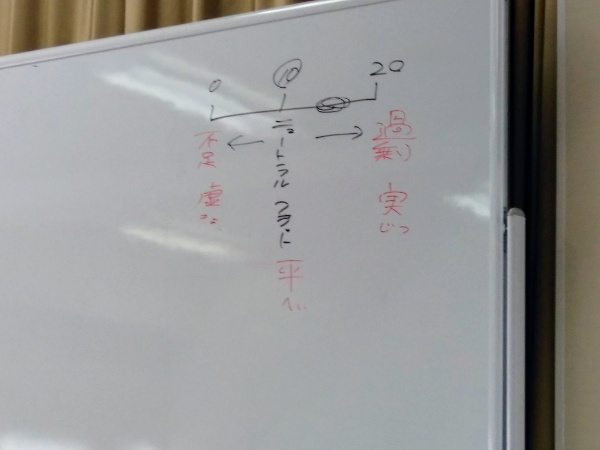 0
10
20
不足
虚
きょ
ニュートラル フラット
平
へい
過剰
実
じつ